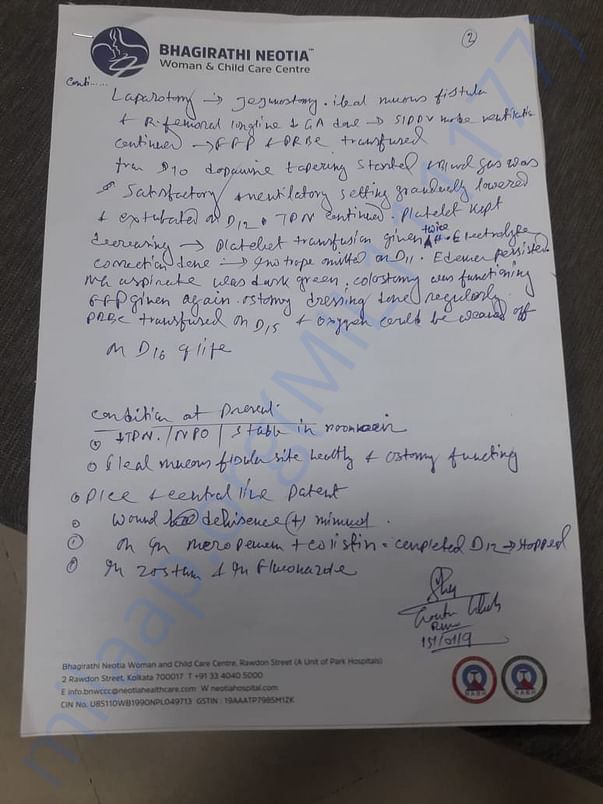 ②
BHAGIRATHI NEOTIA™
Woman & Child Care Centre
Conti.....
Laparotomy → jejunostomy. ileal mucus fistula
+ R. femoral longline ↓ GA done → SIPPV mode ventilation
continued → FFP & PRBC transfused
from D10 dopamine tapering started & blood gas was
satisfactory / ventilatory setting gradually lowered
& extubated on D12. TPN continued. Platelet kept
decreasing → Platelet transfusion given twice. Electrolyte
correction done → Inotrope omitted on D11. Edema persisted.
NG aspirate was dark green. colostomy was functioning
FFP given again. ostomy dressing done regularly.
PRBC transfused on D15 & oxygen could be weaned off
on D16 of life
Condition at Present:
TPN. / NPO / stable in room air
Ileal mucus fistula site healthy & ostomy functing
PICC & central line Patent
Wound dehisence (+) minimal.
On Inj meropenem + colistin - completed D12 → stopped
Inj zostum & Inj Fluconazole
RMO
Bhagirathi Neotia Woman and Child Care Centre, Rawdon Street (A Unit of Park Hospitals)
2 Rawdon Street, Kolkata 700017 T +91 33 4040 5000
E info.bnwccc@neotiahealthcare.com W neotiahospital.com
CIN No. U85110WB1990NPL049713 GSTIN : 19AAATP7985M1ZK
NABH NABH